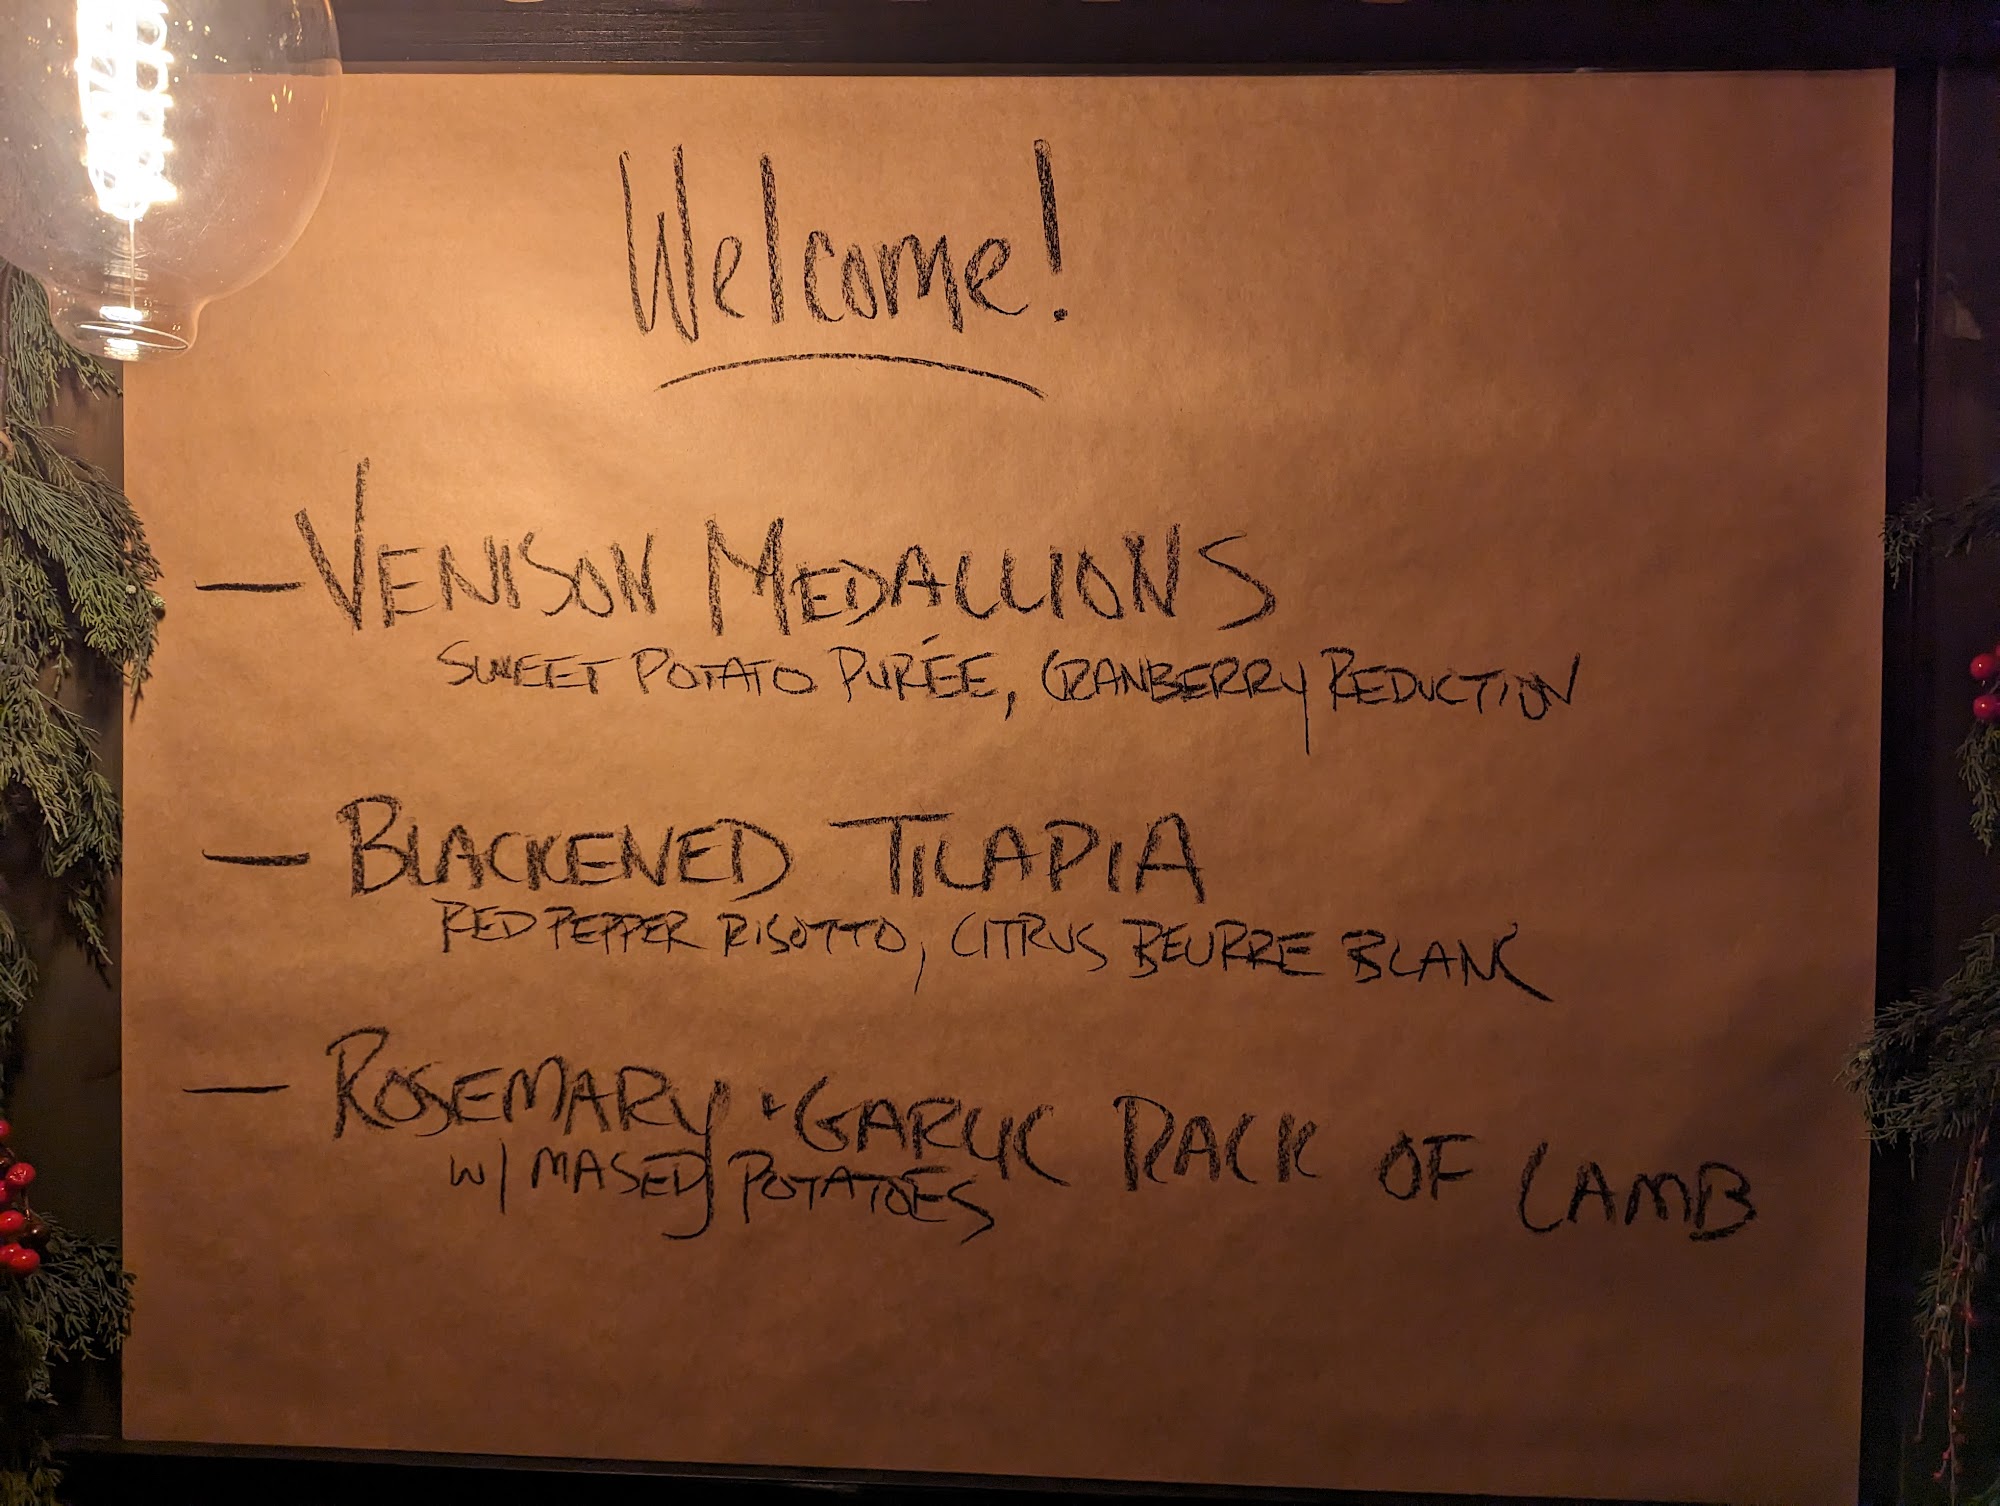 Welcome!
— VENISON MEDALLIONS
SWEET POTATO PURÉE, CRANBERRY REDUCTION
— BLACKENED TILAPIA
RED PEPPER RISOTTO, CITRUS BEURRE BLANC
— ROSEMARY + GARLIC RACK OF LAMB
W/ MASED POTATOES